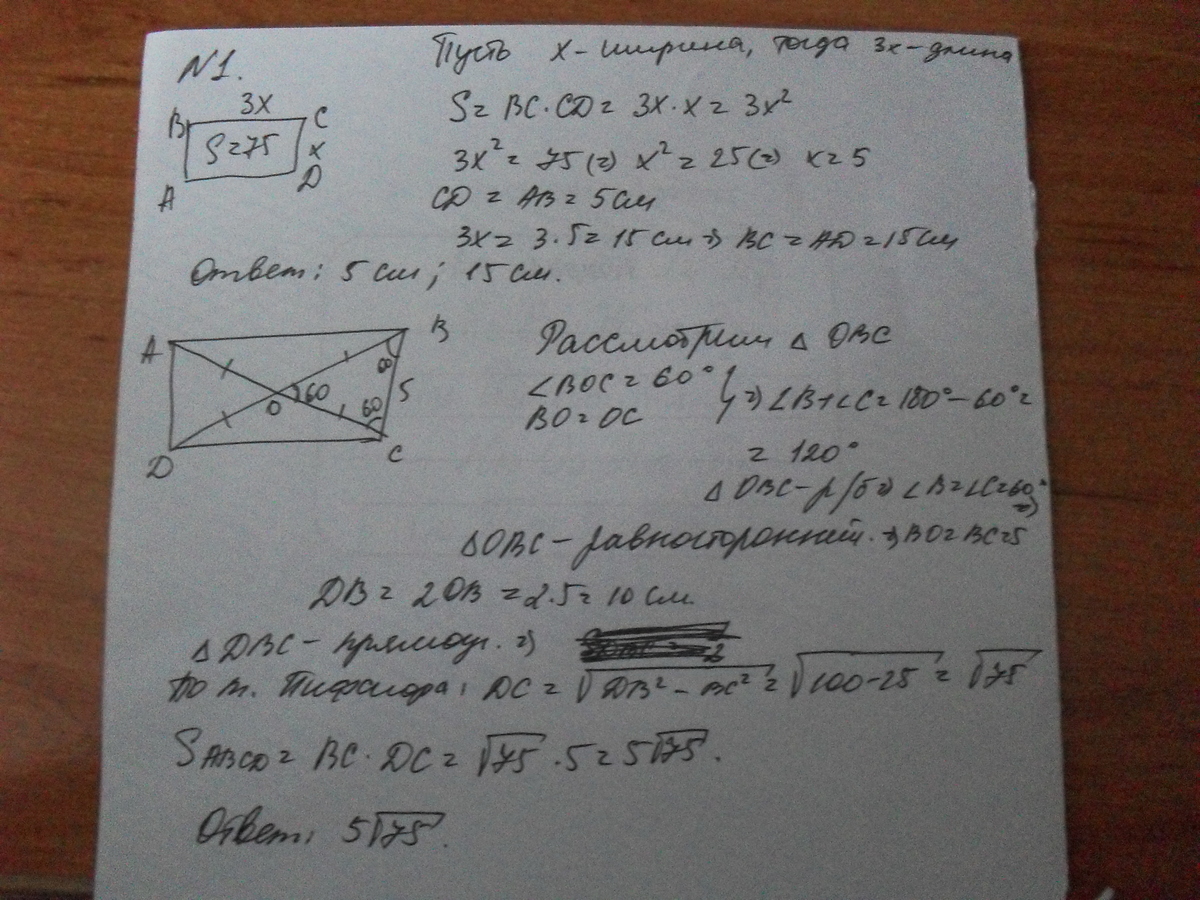 N1.
Пусть x - ширина, тогда 3x - длина
3x
B C
S=75 x
A D
S = BC·CD = 3x·x = 3x²
3x² = 75 (=) x² = 25 (=) x = 5
CD = AB = 5 см
3x = 3·5 = 15 см => BC = AD = 15 см
Ответ: 5 см; 15 см.
A B
60
60 5
O 60
D C
Рассмотрим △ OBC
∠BOC = 60°
BO = OC } => ∠B+∠C = 180° - 60° =
= 120°
△ OBC - р/б => ∠B=∠C=60° =>
△OBC - равносторонний. => BO = BC = 5
DB = 2OB = 2·5 = 10 см.
△ DBC - прямоуг. =>
По т. Пифагора: DC = √DB² - BC² = √100-25 = √75
S ABCD = BC·DC = √75 ·5 = 5√75.
Ответ: 5√75.